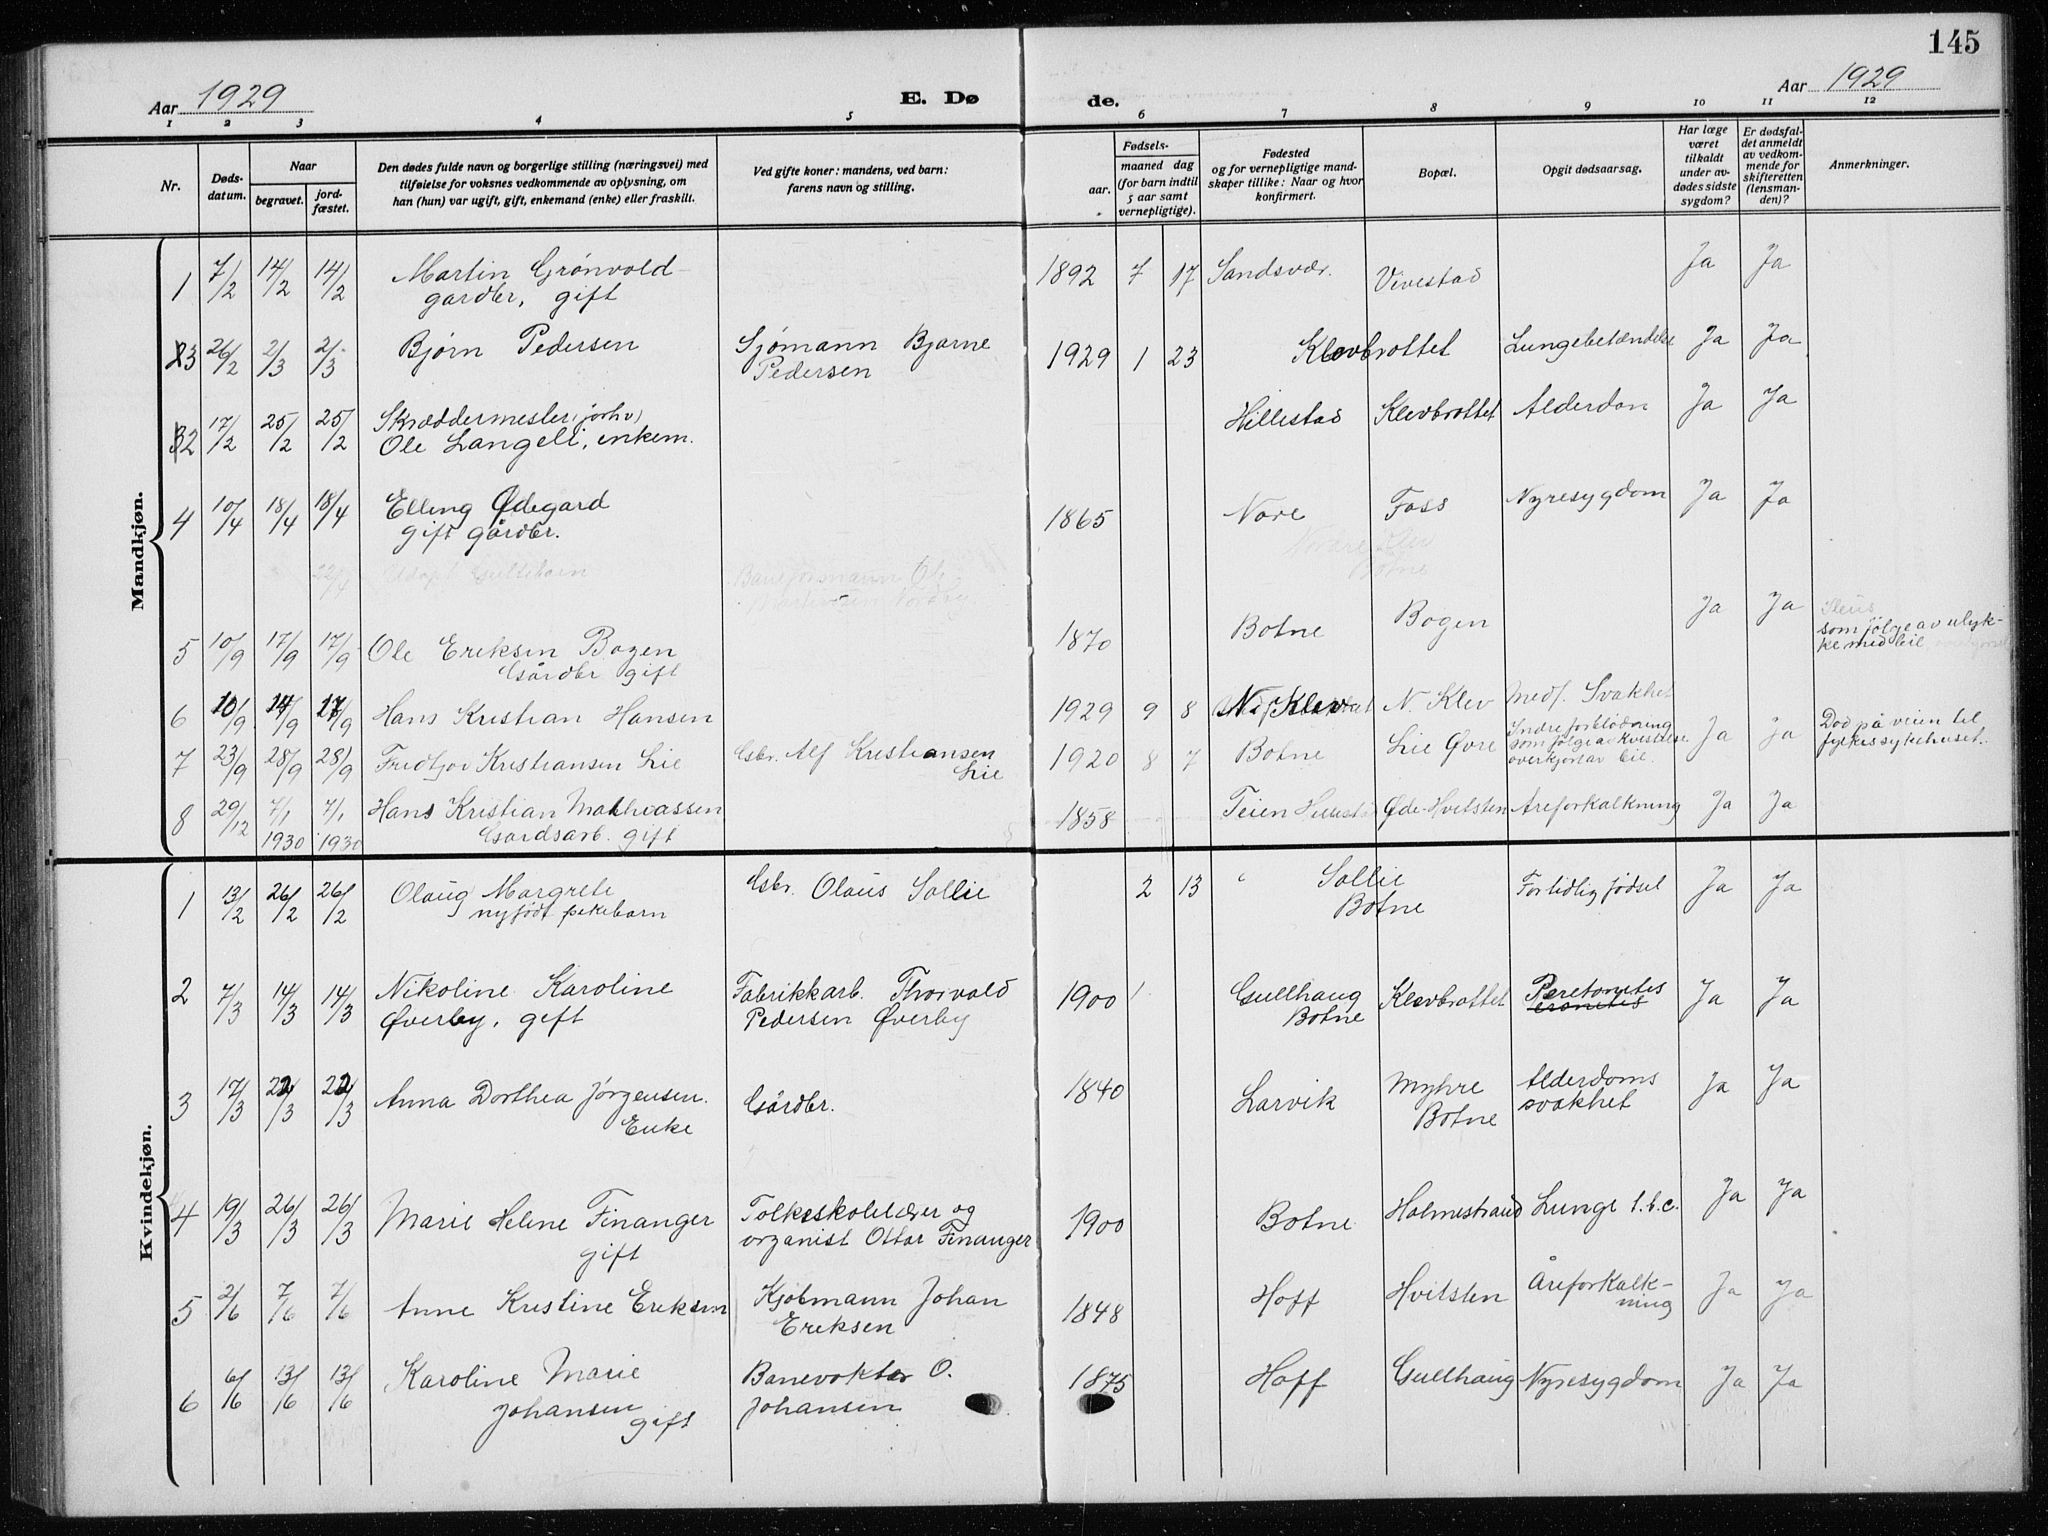 145
Aar 1929 E. Dø de. Aar 1929
1 2 3 4 5 6 7 8 9 10 11 12
Nr.
Døds-
datum.
Naar
begravet.
jord-
fæstet.
Den dødes fulde navn og borgerlige stilling (næringsvei) med
tilføielse for voksnes vedkommende av oplysning, om
han (hun) var ugift, gift, enkemand (enke) eller fraskilt.
Ved gifte koner: mandens, ved barn:
farens navn og stilling.
Fødsels-
aar.
maaned dag
(for barn indtil
5 aar samt
vernepligtige).
Fødested
og for vernepligtige mand-
skaper tillike: Naar og hvor
konfirmert.
Bopæl.
Opgit dødsaarsag.
Har læge
været
tilkaldt
under av-
dødes sidste
sygdom?
Er dødsfal-
det anmeldt
av vedkom-
mende for
skifteretten
(lensman-
den)?
Anmerkninger.
Mandkjøn.
1 7/2 14/2 14/2 Martin Grönvold 1892 7 17 Sandsvær. Vivestad Ja Ja
gårdbr, gift
3 26/2 2/3 2/3 Bjørn Pedersen Sjömann Bjarne 1929 1 23 Klevbrottet Lungebetændelse Ja Ja
Pedersen
2 17/2 25/2 25/2 Skræddermester Hillestad Klevbrottet Alderdom Ja Ja
Ole Langeli, enkem.
4 10/4 18/4 18/4 Elling Ødegard 1865 Nore Foss Nyresygdom Ja Ja
gift gårdbr.
5 10/9 17/9 17/9 Ole Eriksen Bogen 1870 Botne Bogen Ja Ja Ileus
Gårdbr gift som følge av ulyk-
ke med bil
6 10/9 17/9 17/9 Hans Kristian Hansen 1929 9 8 N. Klev N. Klev Medf. Svakhet
7 23/9 28/9 28/9 Fridtjov Kristiansen Lie Gbr. Alf Kristiansen 1920 8 7 Botne Lie Øvre Indre forblödning Ja Ja Död på veien til
Lie som følge av kvestelse fylkessykehuset.
overkjört av bil.
8 29/12 7/1 7/1 Hans Kristian Mathiassen 1858 Teien Øde-Hvitsten Åreforkalkning Ja Ja
1930 1930 Gårdsarb. gift
Kvindekjøn.
1 13/2 26/2 26/2 Olaug Margrete Gbr. Olaus Sollie 2 13 Sollie For tidlig födsel Ja Ja
nyfödt pikebarn Botne
2 7/3 14/3 14/3 Nikoline Karoline Fabrikkarb. Thorvald 1900 Gullhaug Klevbrottet Peretonitis Ja Ja
Øverby, gift Pedersen Øverby Botne
3 17/3 22/3 22/3 Anna Dorthea Jørgensen. Gårdbr. 1840 Larvik Myhre Alderdoms Ja Ja
Enke Botne svakhet
4 19/3 26/3 26/3 Marie Helene Finanger Folkeskolelærer og 1900 Botne Holmestrand Lunge t.b.c. Ja Ja
gift organist Ottar Finanger
5 2/6 7/6 7/6 Anne Kristine Eriksen Kjöbmann Johan 1848 Hoff Hvitsten Åreforkalk- Ja Ja
Eriksen ning
6 6/6 13/6 13/6 Karoline Marie Banevokter O. 1875 Hoff Gullhaug Nyresygdom Ja Ja
Johansen Johansen
gift